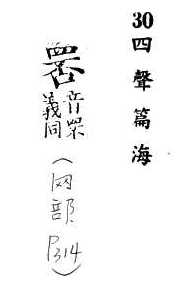 30四聲篇海
音罘
義同
(网部P314)